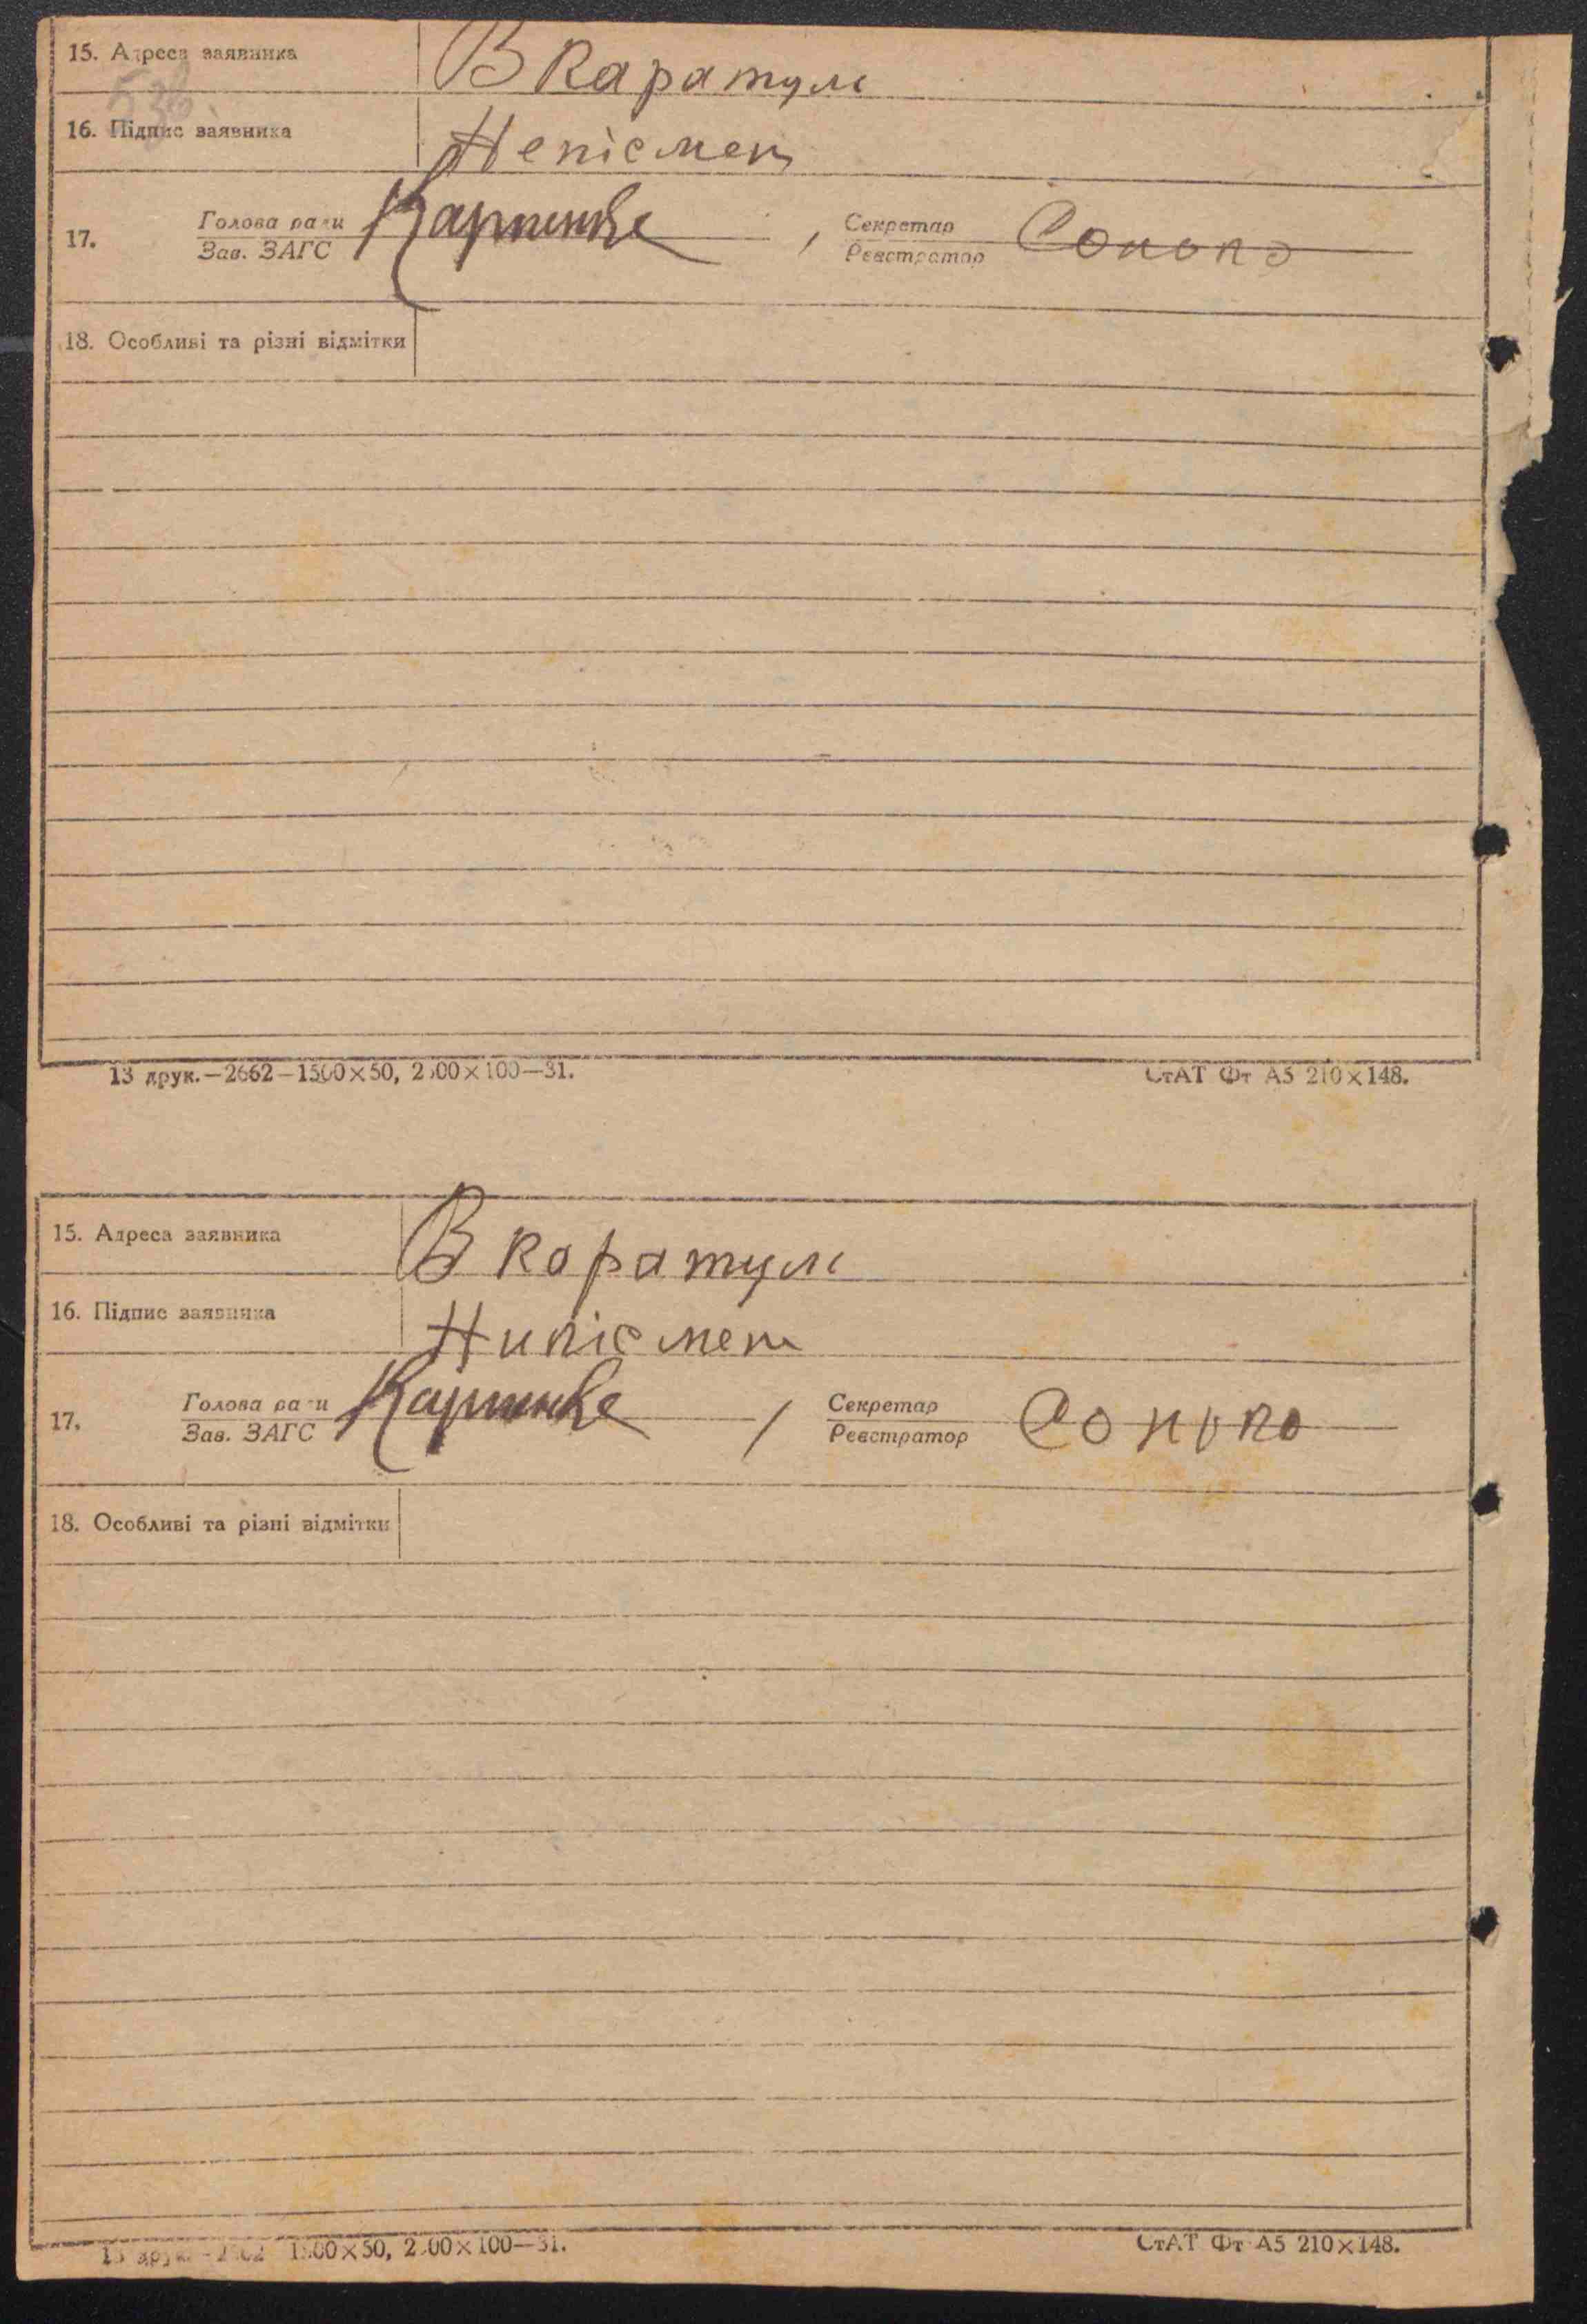 15. Адреса заявника В Каратулі
536.
16. Підпис заявника Непісмен
17. Голова ради Зав. ЗАГС Карпенко , Секретар Реєстратор Сопопо
18. Особливі та різні відмітки
13 друк.—2662—1500×50, 2500×100—31. СтАТ Фт А5 210×148.
15. Адреса заявника В Каратулі
16. Підпис заявника Нипісмен
17. Голова ради Зав. ЗАГС Карпенко / Секретар Реєстратор
18. Особливі та різні відмітки
13 друк.—2662—1500×50, 2500×100—31. СтАТ Фт А5 210×148.